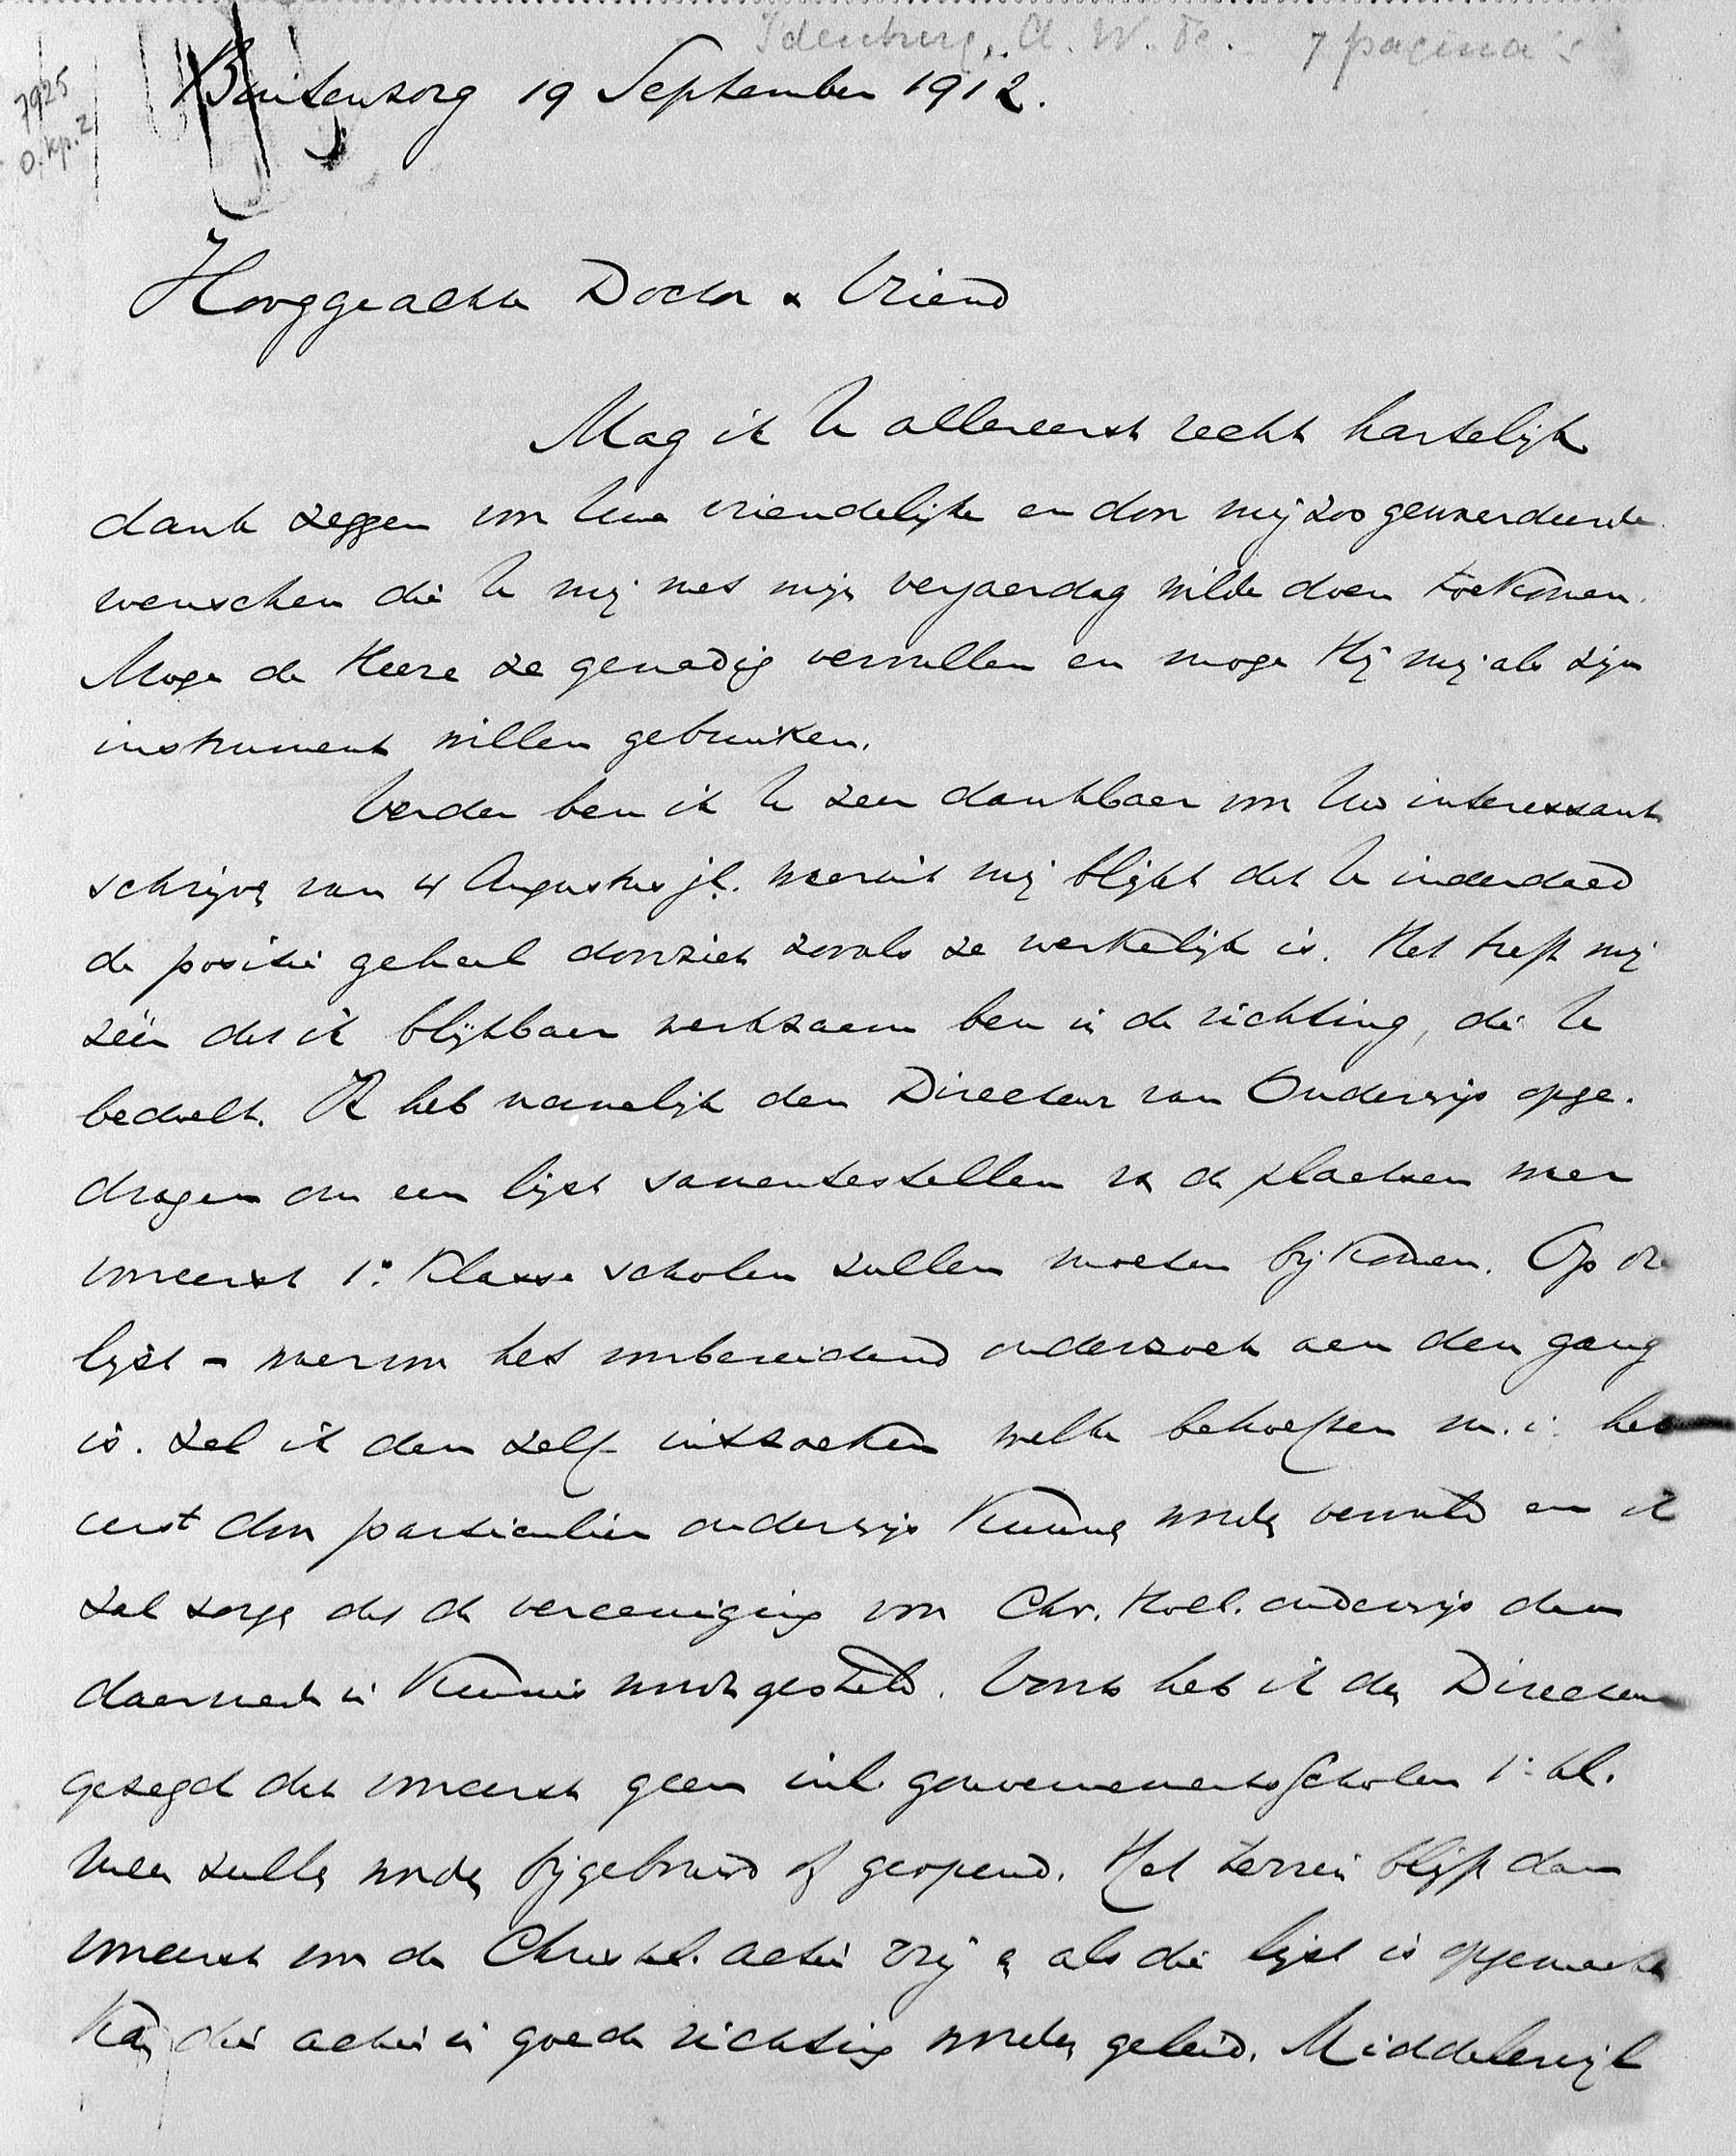 Idenburg, A. W. F. 7 pagina's
7925
O. Kp. 2
Buitenzorg 19 September 1912.
Hooggeachte Doctor & Vriend
Mag ik U allereerst recht hartelijk
dank zeggen voor Uwe vriendelijke en door mij zoo gewaardeerde
wenschen die U mij met mijn verjaardag wilde doen toekomen.
Moge de Heere ze genadig vervullen en moge Hij mij als zijn
instrument willen gebruiken.
Verder ben ik U zeer dankbaar voor Uw interessant
schrijven van 4 Augustus jl. waaruit mij blijkt dat U inderdaad
de positie geheel doorziet zooals ze werkelijk is. Het treft mij
zéér dat ik blijkbaar werkzaam ben in de richting, die U
bedoelt. Ik heb namelijk den Directeur van Onderwijs opge-
dragen om een lijst samentestellen van de plaatsen waar
vooreerst 1e Klasse scholen zullen moeten bijkomen. Op die
lijst - waarvoor het voorbereidend onderzoek aan den gang
is. zal ik dan zelf uitzoeken welke behoeften m. i. het
eerst door particulier onderwijs kunnen worden vervuld en ik
zal zorgen dat de vereeniging voor Chr. Holl. onderwijs dan
daarmede in kennis wordt gesteld. Voorts heb ik den Directeur
gezegd dat vooreerst geen inl. gouvernementsscholen 1e kl.
meer zullen worden bijgebouwd of geopend. Het terrein blijft dan
vooreerst voor de Christel. actie vrij en als die lijst is opgemaakt
kan die actie in goede richting worden geleid. Middelerwijl